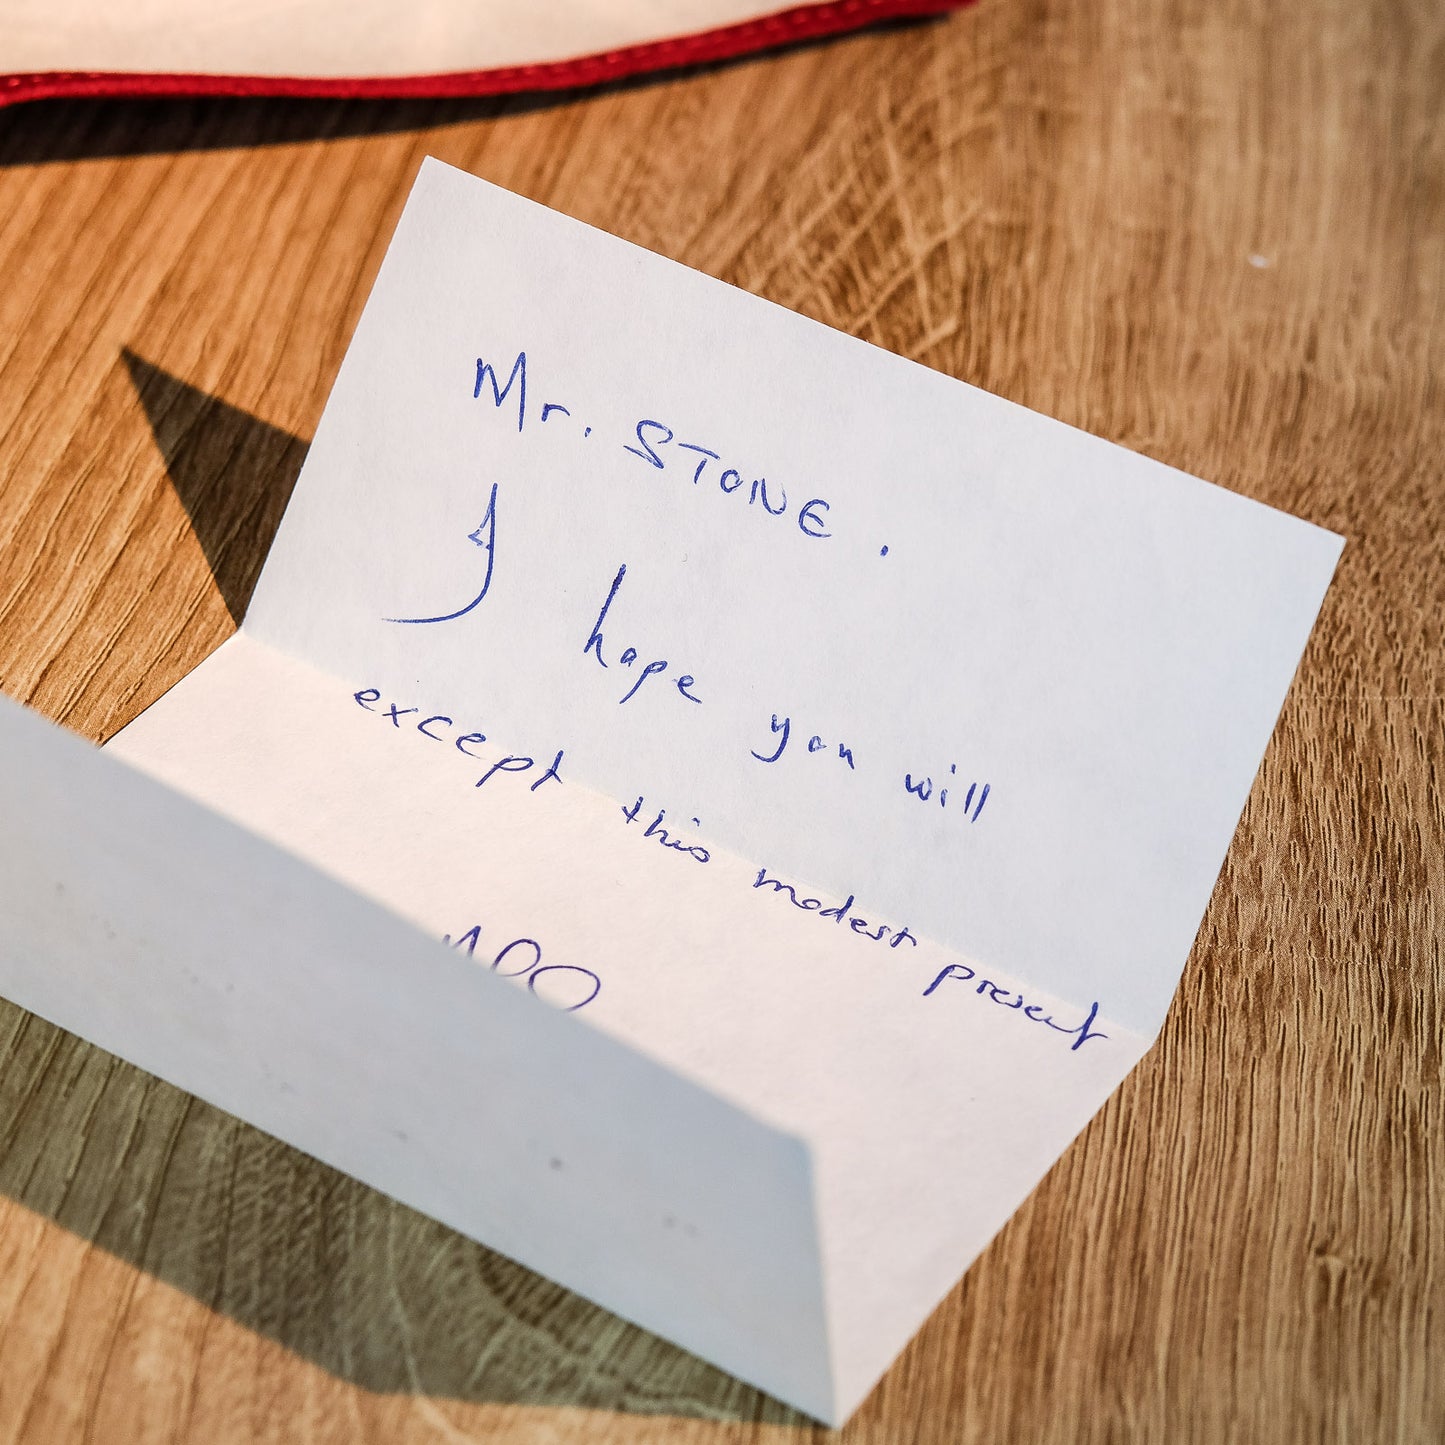 Mr. STONE.
I hope you will
except this modest present